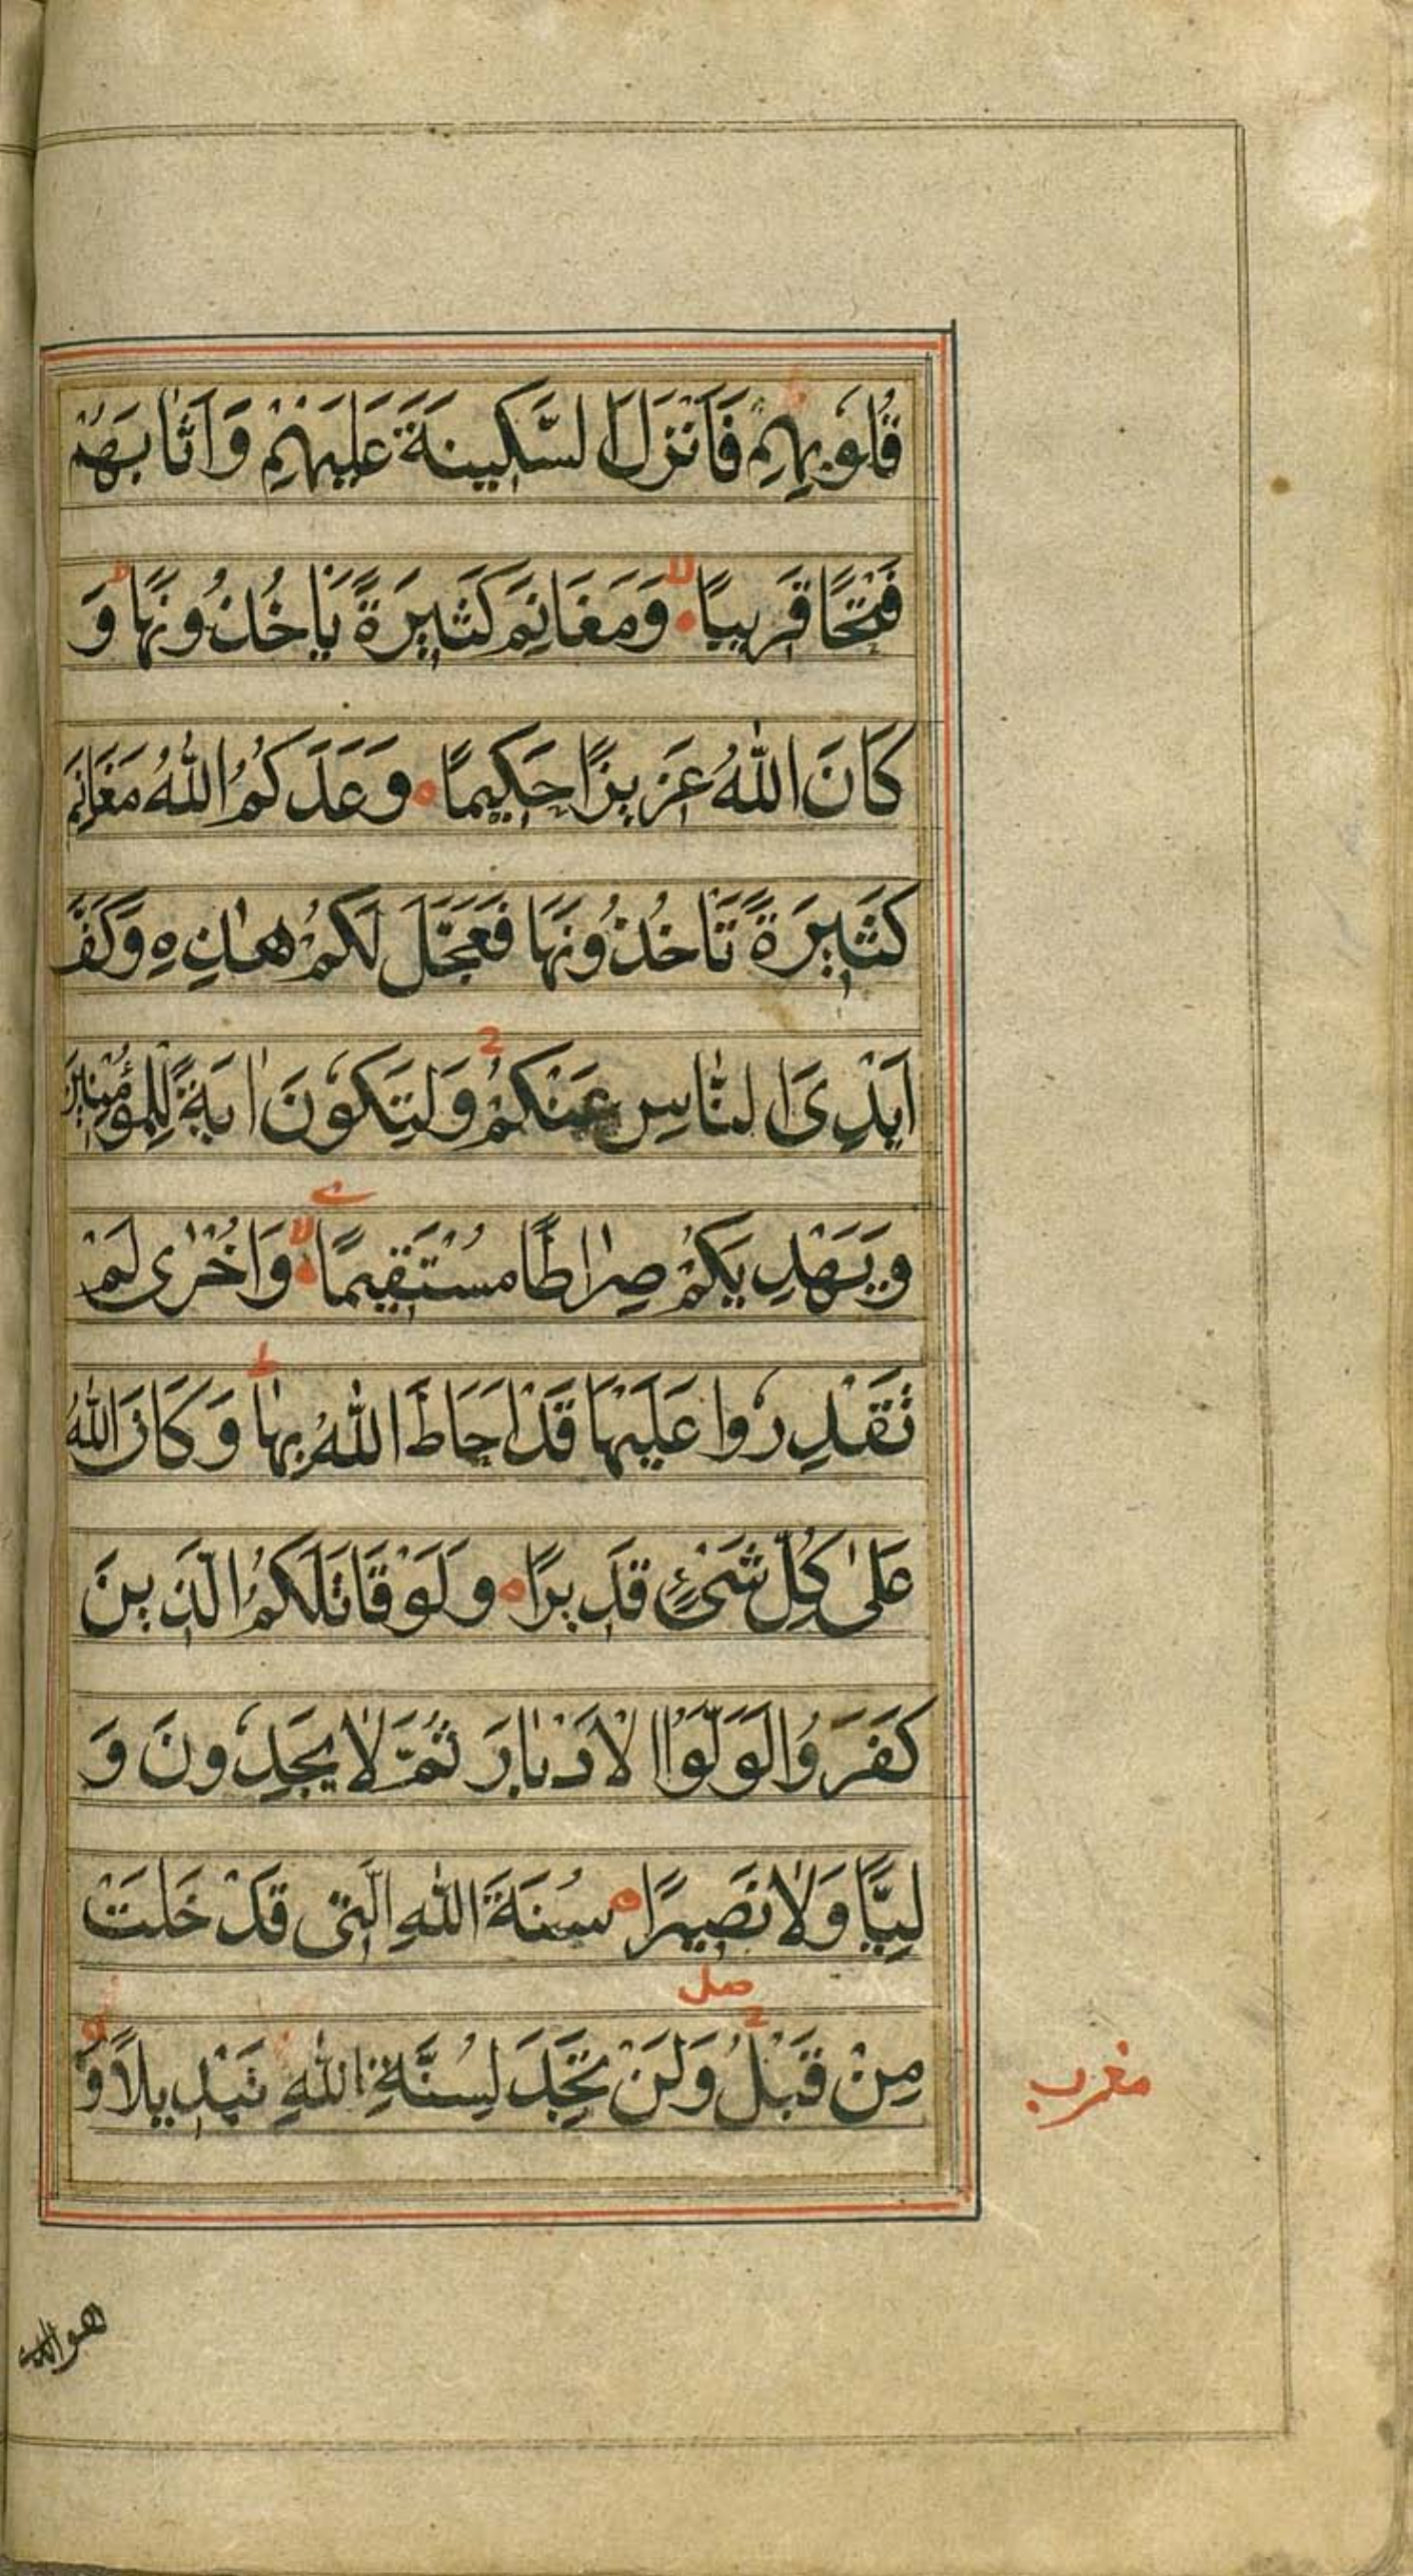 قُلُوبِهِمْ فَاَنْزَلَ السَّكِينَةَ عَلَيْهِمْ وَاَثَابَهُمْ
فَتْحًا قَرِيبًا ۙ وَمَغَانِمَ كَثِيرَةً يَاْخُذُونَهَا ۗ وَ
كَانَ اللّٰهُ عَزِيزًا حَكِيمًا وَعَدَكُمُ اللّٰهُ مَغَانِمَ
كَثِيرَةً تَاْخُذُونَهَا فَعَجَّلَ لَكُمْ هٰذِهِ وَكَفَّ
اَيْدِىَ النَّاسِ عَنْكُمْ وَلِتَكُونَ اٰيَةً لِلْمُؤْمِنِينَ
وَيَهْدِيَكُمْ صِرَاطًا مُسْتَقِيمًا ۙ وَاُخْرٰى لَمْ
تَقْدِرُوا عَلَيْهَا قَدْ اَحَاطَ اللّٰهُ بِهَا ط وَكَانَ اللّٰهُ
عَلٰى كُلِّ شَىْءٍ قَدِيرًا وَلَوْ قَاتَلَكُمُ الَّذِينَ
كَفَرُوا لَوَلَّوُا الْاَدْبَارَ ثُمَّ لَا يَجِدُونَ وَ
لِيًّا وَلَا نَصِيرًا سُنَةَ اللّٰهِ الَّتِى قَدْ خَلَتْ
صل
مِنْ قَبْلُ وَلَنْ تَجِدَ لِسُنَّةِ اللّٰهِ تَبْدِيلًا وَ
مغرب
هوالذى